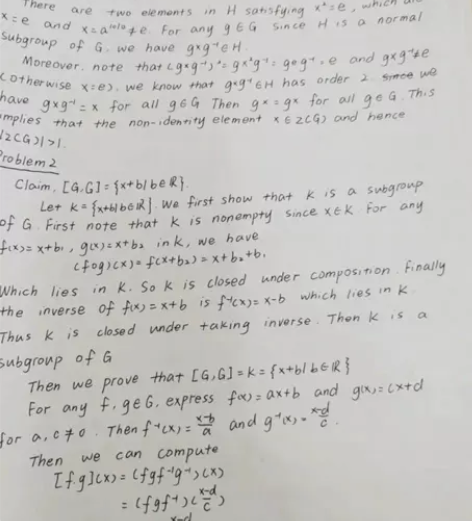 There are two elements in H satisfying x²=e, which are
x=e and x=a ≠e. For any g∈G since H is a normal
subgroup of G, we have gxg⁻¹∈H.
Moreover, note that (gxg⁻¹)²=gx²g⁻¹=geg⁻¹=e and gxg⁻¹≠e
(otherwise x=e), we know that gxg⁻¹∈H has order 2. since we
have gxg⁻¹=x for all g∈G Then gx=gx for all g∈G. This
implies that the non-identity element x∈Z(G) and hence
|Z(G)|>1.
Problem 2
Claim, [G,G]={x+b|b∈R}.
Let k={x+b|b∈R}. We first show that k is a subgroup
of G. First note that k is nonempty since x∈k. For any
f(x)=x+b₁, g(x)=x+b₂ in k, we have
(f∘g)(x)=f(x+b₂)=x+b₂+b₁
Which lies in k. So k is closed under composition. Finally
the inverse of f(x)=x+b is f⁻¹(x)=x-b which lies in k
Thus k is closed under taking inverse. Then k is a
subgroup of G
Then we prove that [G,G]=k={x+b|b∈R}
For any f,g∈G, express f(x)=ax+b and g(x)=cx+d
for a,c≠0. Then f⁻¹(x)=(x-b)/a and g⁻¹(x)=(x-d)/c.
Then we can compute
[f,g](x)=(fgf⁻¹g⁻¹)(x)
=(fgf⁻¹)((x-d)/c)
x-d